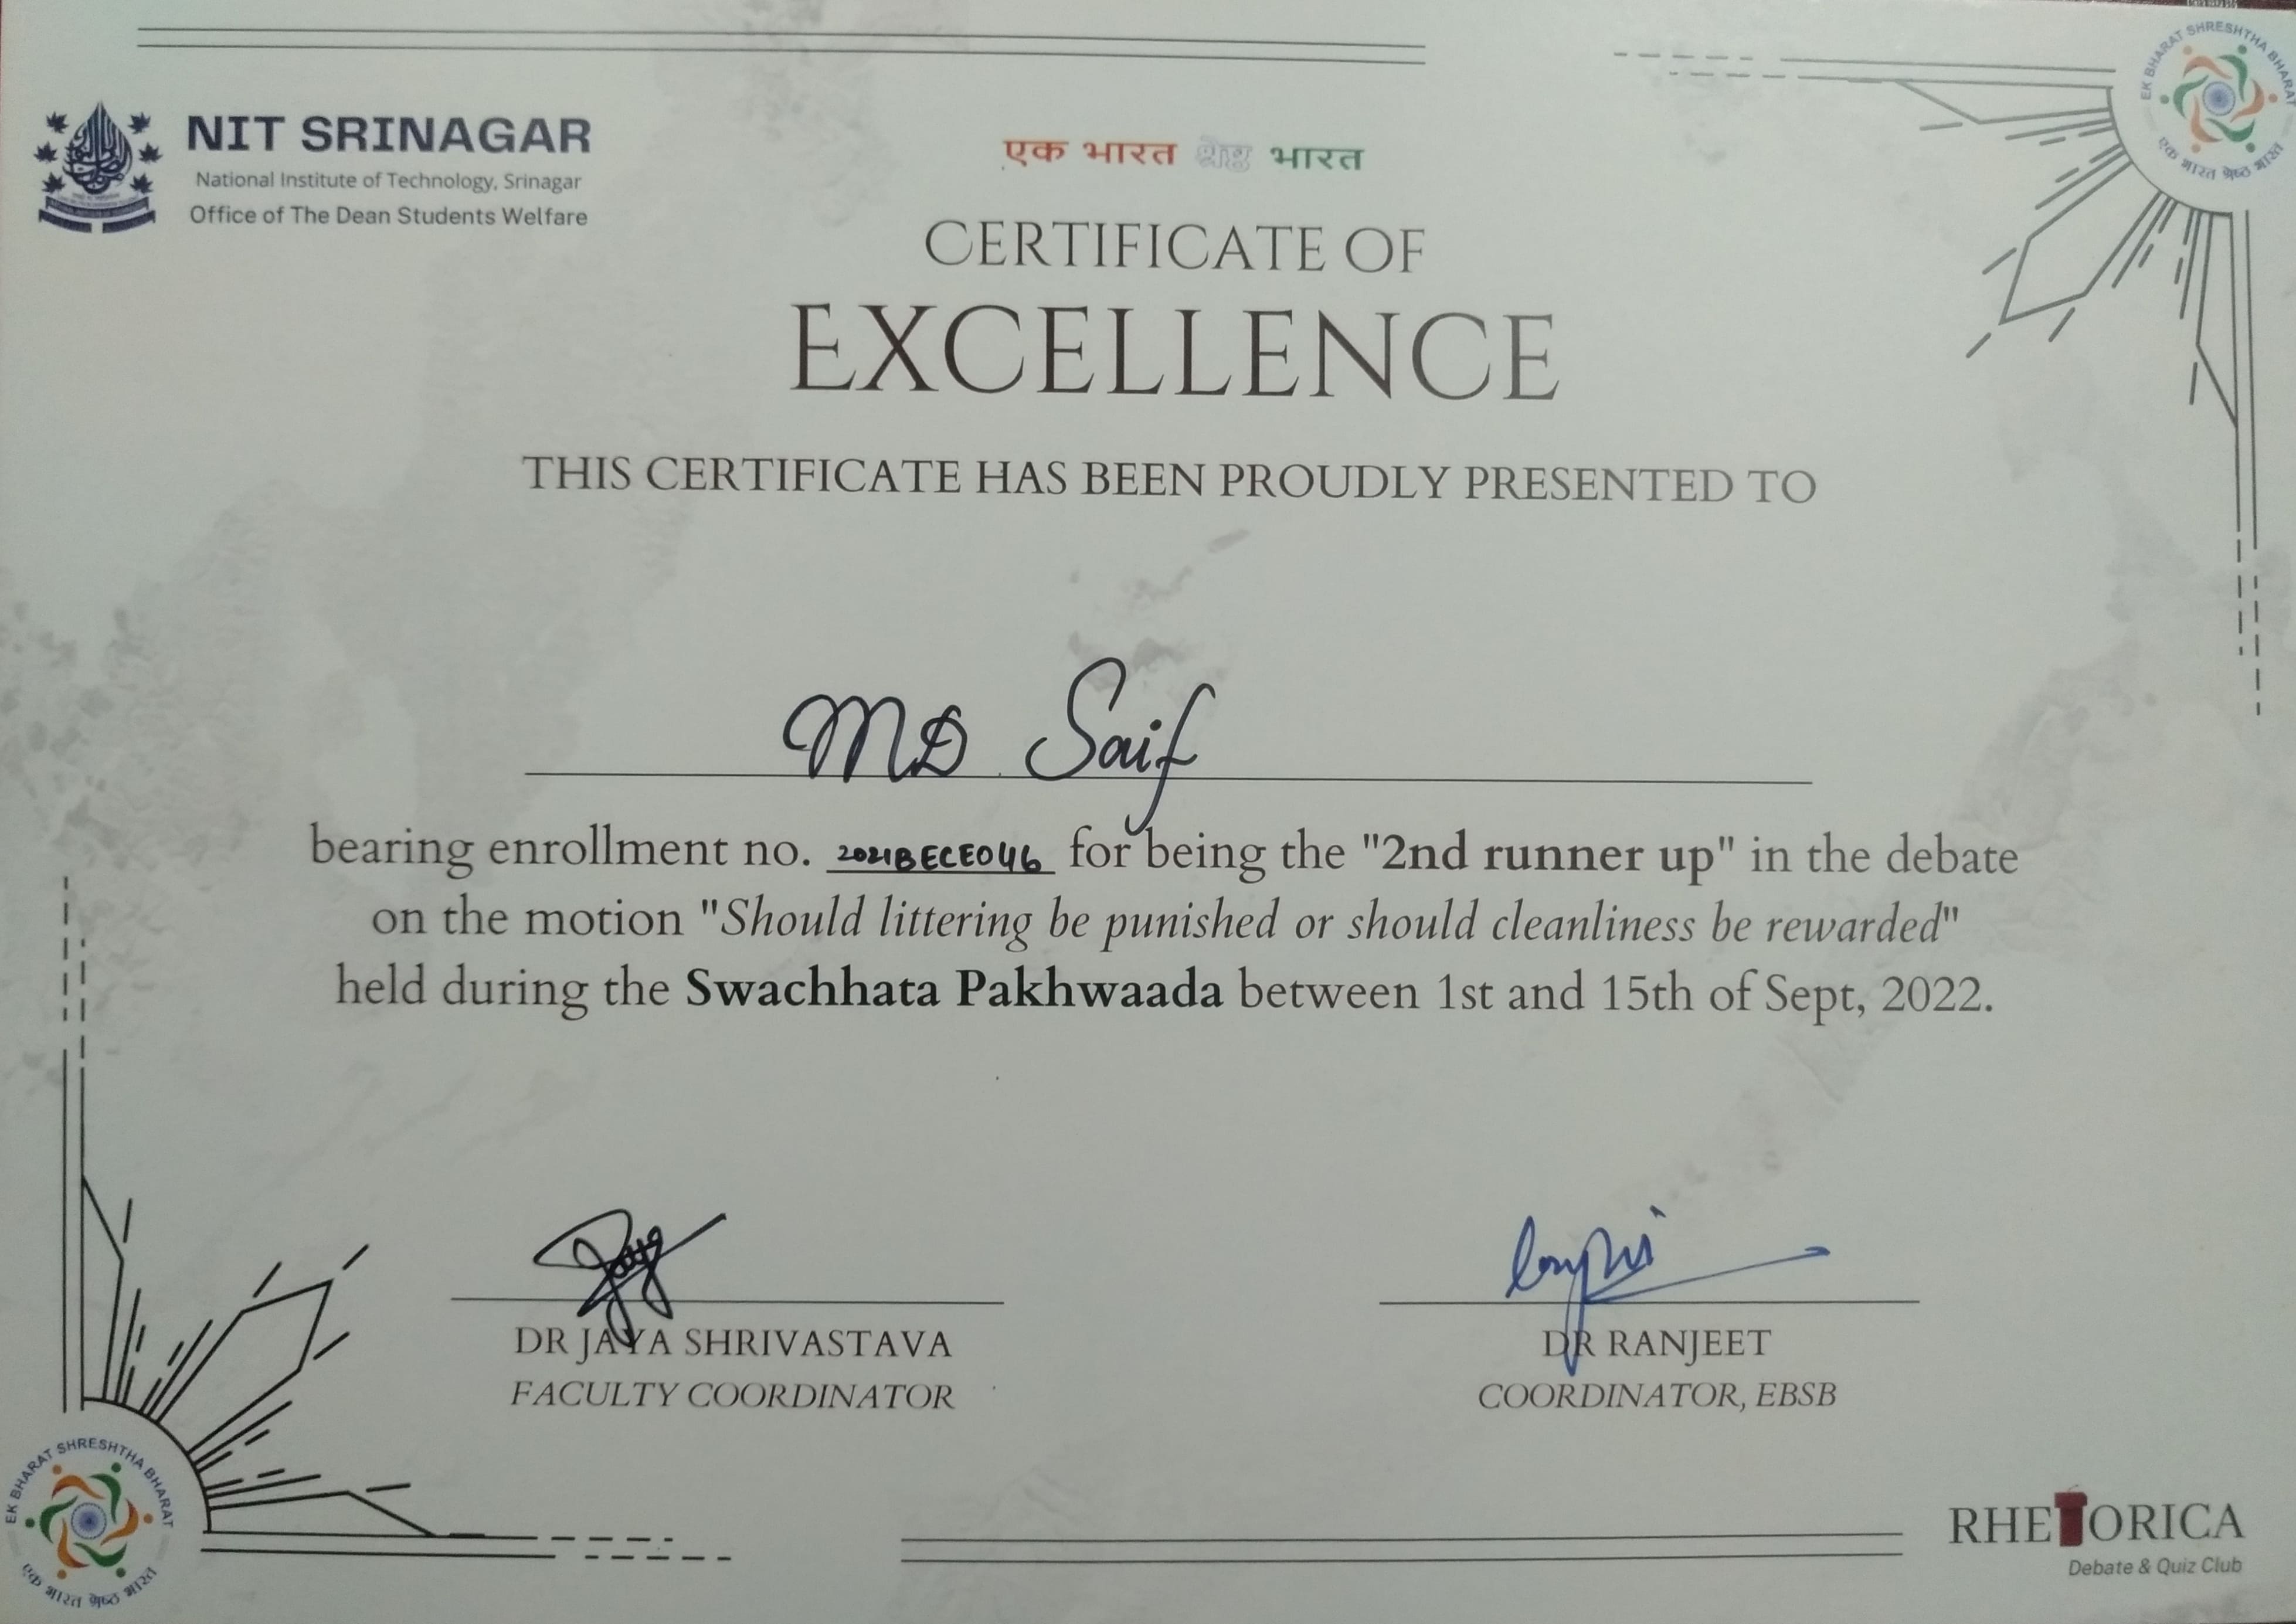 NIT SRINAGAR
National Institute of Technology, Srinagar
Office of The Dean Students Welfare
एक भारत श्रेष्ठ भारत
EK BHARAT SHRESHTHA BHARAT
एक भारत श्रेष्ठ भारत
CERTIFICATE OF
EXCELLENCE
THIS CERTIFICATE HAS BEEN PROUDLY PRESENTED TO
MD Saif
bearing enrollment no. 2021BECE046 for being the "2nd runner up" in the debate
on the motion "Should littering be punished or should cleanliness be rewarded"
held during the Swachhata Pakhwaada between 1st and 15th of Sept, 2022.
DR JAYA SHRIVASTAVA
FACULTY COORDINATOR
DR RANJEET
COORDINATOR, EBSB
EK BHARAT SHRESHTHA BHARAT
एक भारत श्रेष्ठ भारत
RHETORICA
Debate & Quiz Club